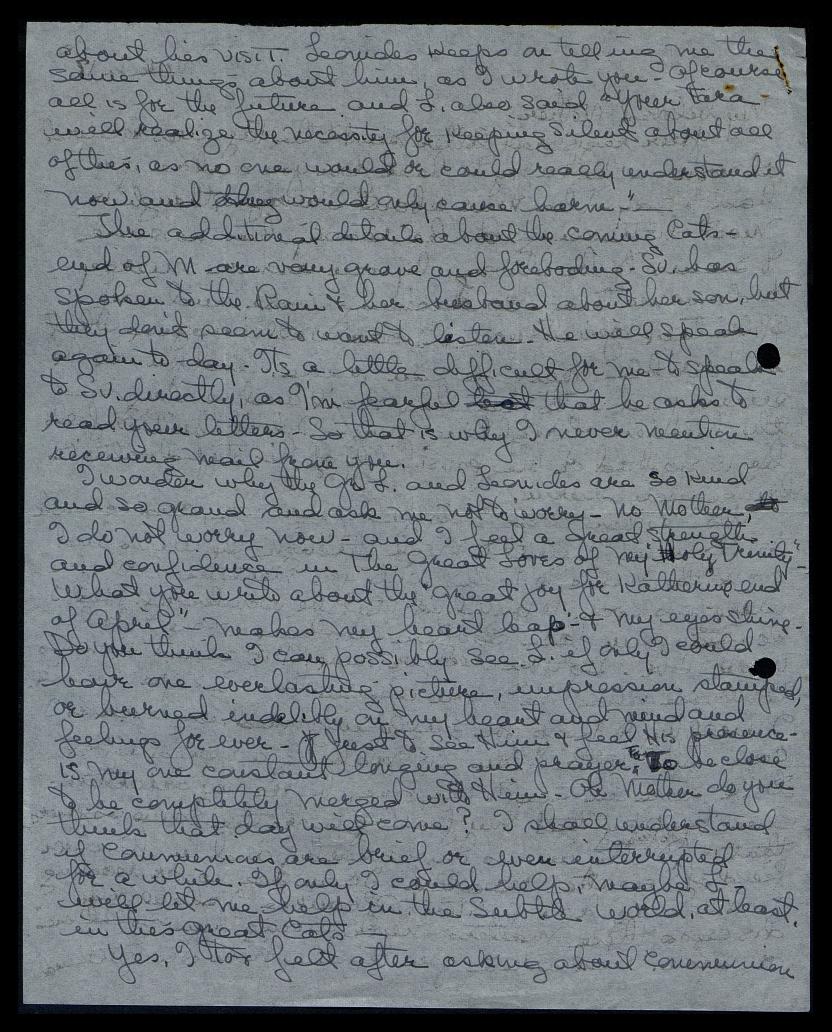 about his visit. Leonides keeps on telling me the
same things about him, as I wrote you - of course
all is for the future and L. also said "Your Tara
will realize the necessity for keeping silent about all
of this, as no one would or could really understand it
now and they would only cause harm." —
The additional details about the coming Cats -
end of M - are very grave and foreboding. Sv. has
spoken to the Rani & her husband about her son, but
they don't seem to want to listen. He will speak
again to-day. Its a little difficult for me to speak
to Sv. directly, as I'm fearful that he asks to
read your letters - So that is why I never mention
receiving mail from you.
I wonder why the Gr. L. and Leonides are so kind
and so grand and ask me not to worry - no Mother,
I do not worry now - and I feel a great strength
and confidence in The Great Loves of my "Holy Trinity" -
What you write about the "great joy for Katherine end
of April" - makes my heart leap - & my eyes shine -
Do you think I can possibly see L. if only I could
have one everlasting picture, impression stamped,
or burned indelibly on my heart and mind and
feelings for ever - Just to see Him & feel His presence -
is my one constant longing and prayer. To be close
to be completely merged with Him - Oh Mother do you
think that day will come? I shall understand
if Communions are brief or even interrupted
for a while. If only I could help, maybe L -
will let me help in the Subtle World, at least,
in this great Cats —
Yes, I too felt after asking about Communion